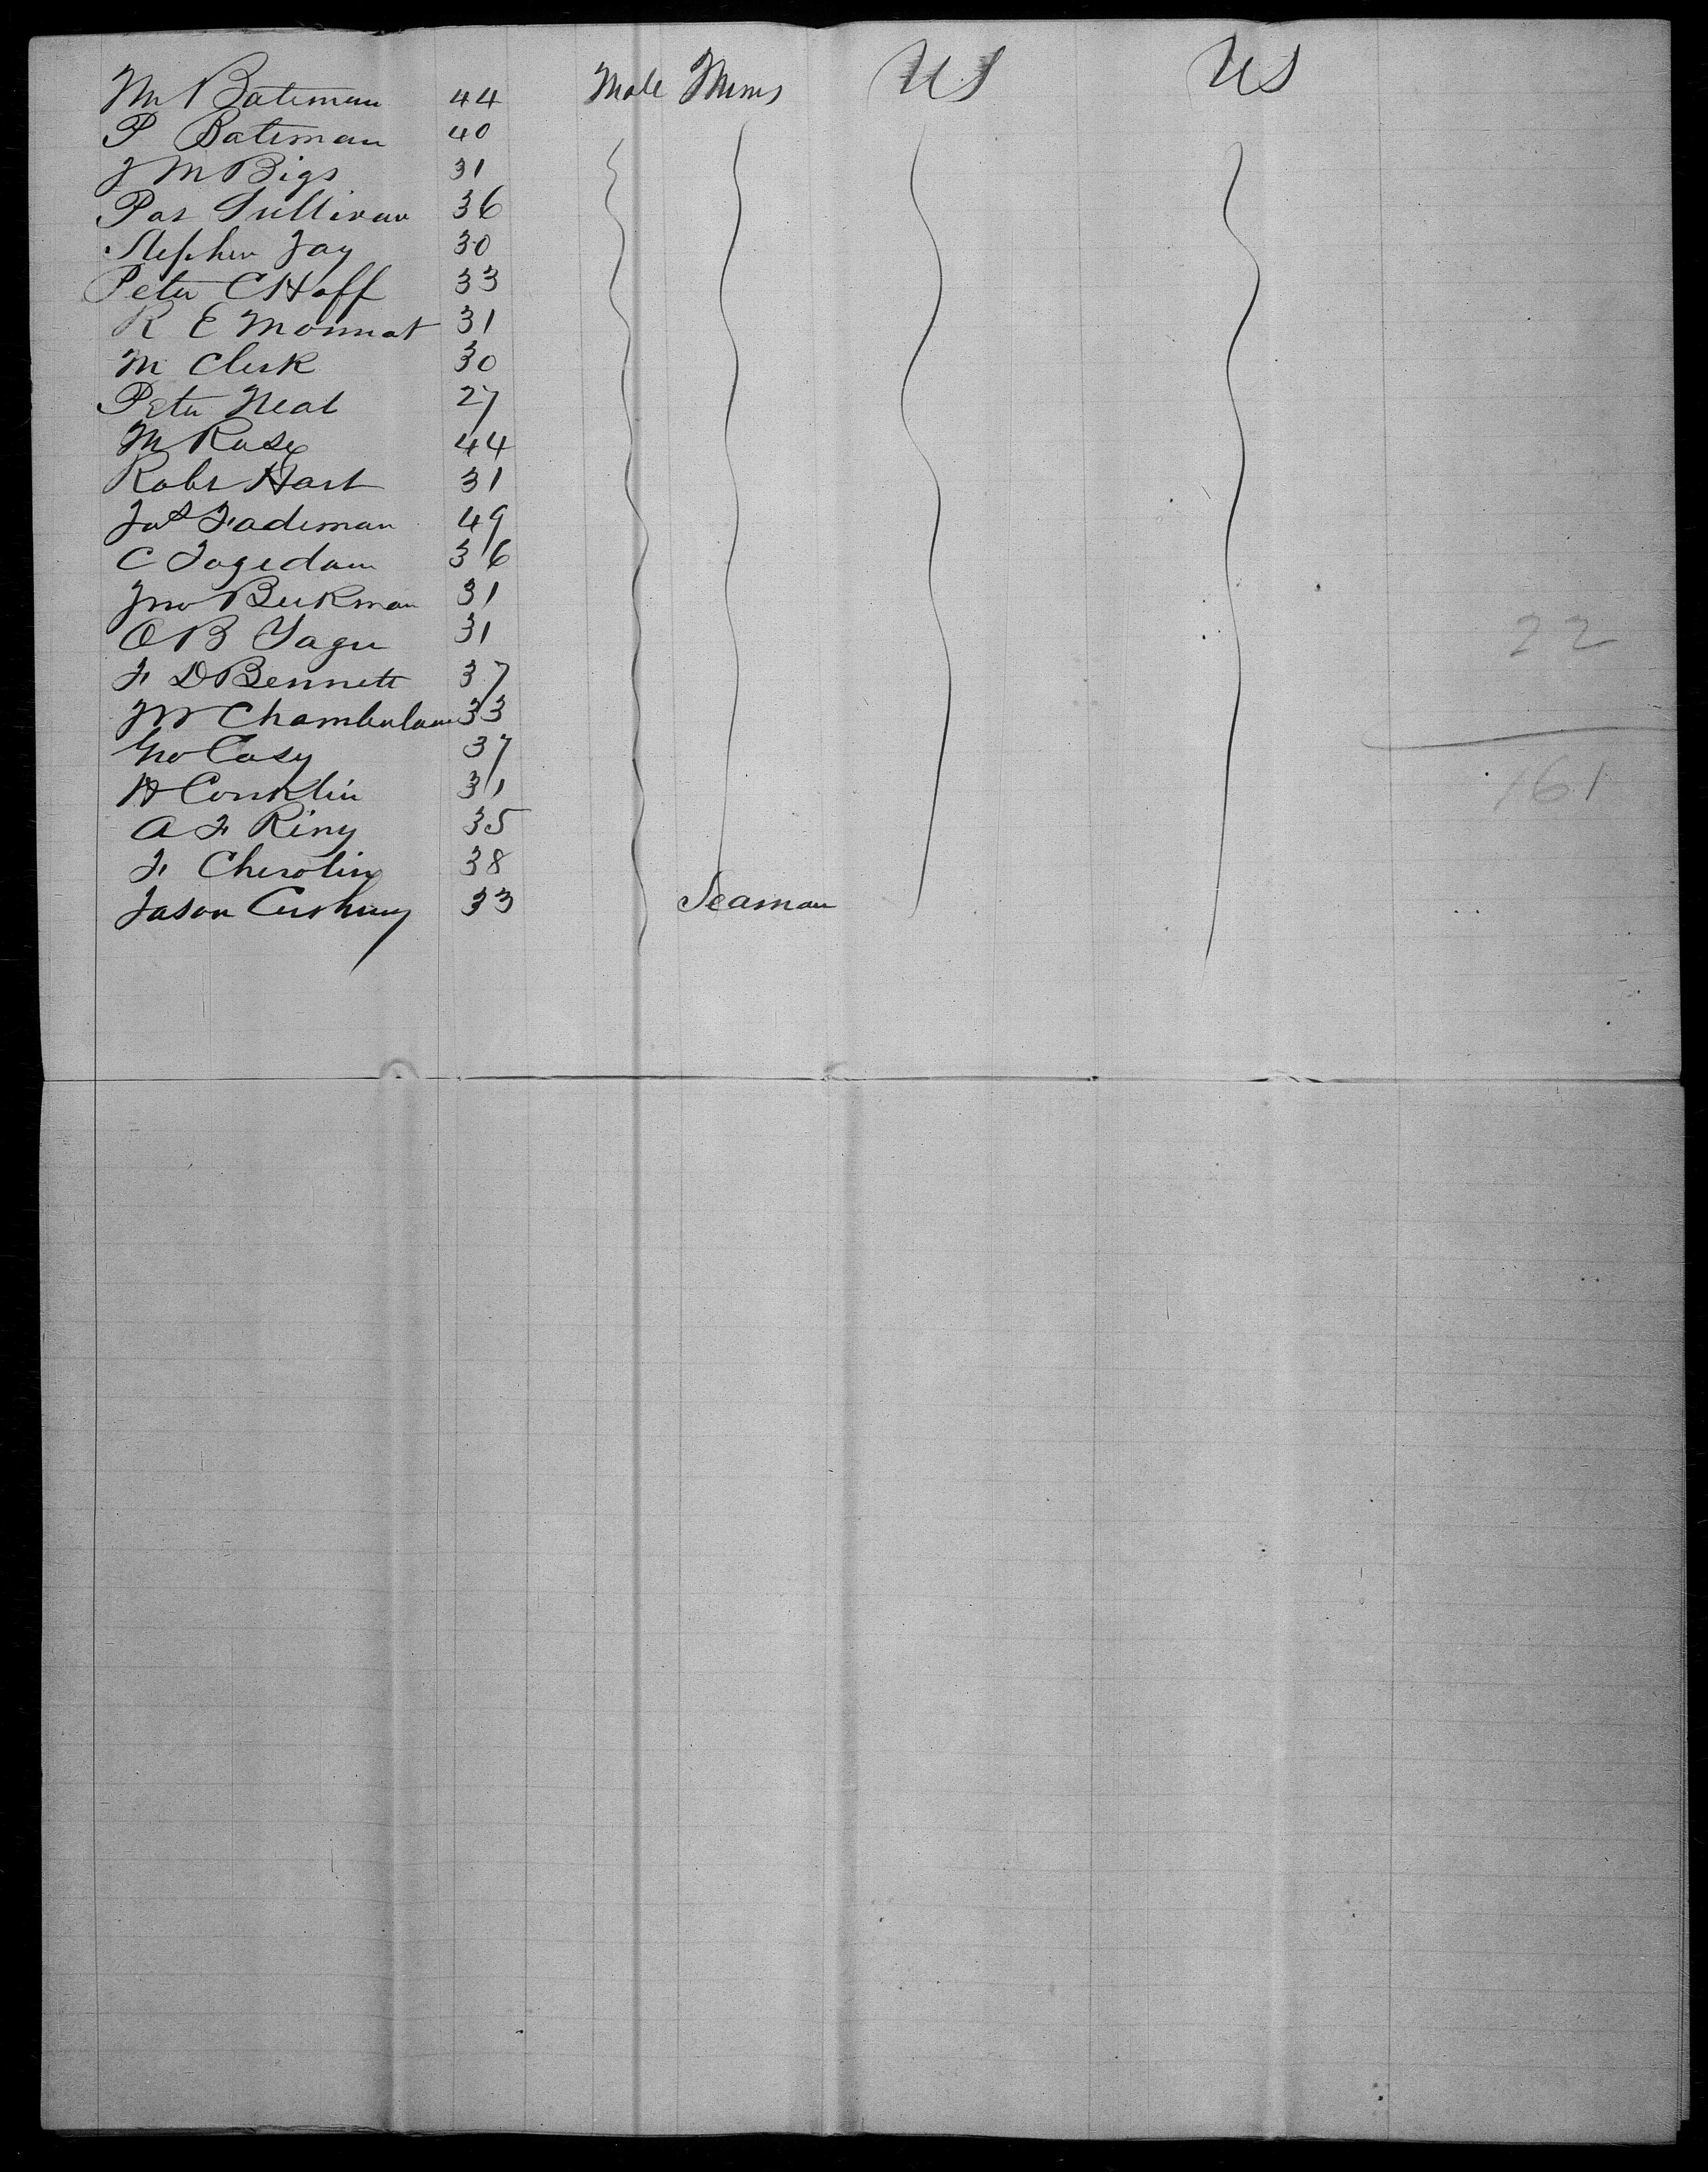 M Bateman 44 Male Miners US US
P Bateman 40
J M Bigs 31
Pat Sullivan 36
Stephen Jay 30
Peter C Hoff 33
R E Monnat 31
M Clerk 30
Peter Neal 27
M Rose 44
Robt Hart 31
Jas Fademan 49
C 36
Jno Beekman 31
O B 31
F D Bennett 37
J W Chamberlain 33
Casy 37
H Conklin 31
A F Riny 35
F 38
Jason Cushing 33 Seaman
22
161